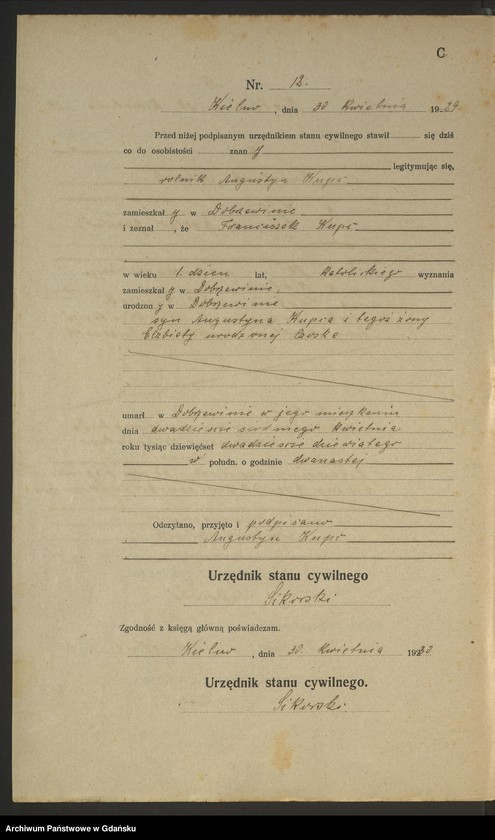 C
Nr. 12.
Kielno, dnia 30 Kwietnia 1929.
Przed niżej podpisanym urzędnikiem stanu cywilnego stawił się dziś
co do osobistości znany
legitymując się,
rolnik Augustyn Kupc
zamieszkały w Dobrzewinie
i zeznał, że Franciszek Kupc
w wieku 1. dzien lat, katolickiego wyznania
zamieszkały w Dobrzewinie,
urodzony w Dobrzewinie
syn Augustyna Kupca i tegoż żony
Elżbiety urodzonej
umarł w Dobrzewinie w jego mieszkaniu
dnia dwadzieścia siódmego Kwietnia
roku tysiąc dziewięćset dwadzieścia dziewiątego
w połudn. o godzinie dwanastej
Odczytano, przyjęto i podpisano
Augustyn Kupc
Urzędnik stanu cywilnego
Sikorski
Zgodność z księgą główną poświadczam.
Kielno, dnia 30. Kwietnia
Urzędnik stanu cywilnego.
Sikorski.
Archiwum Państwowe w Gdańsku